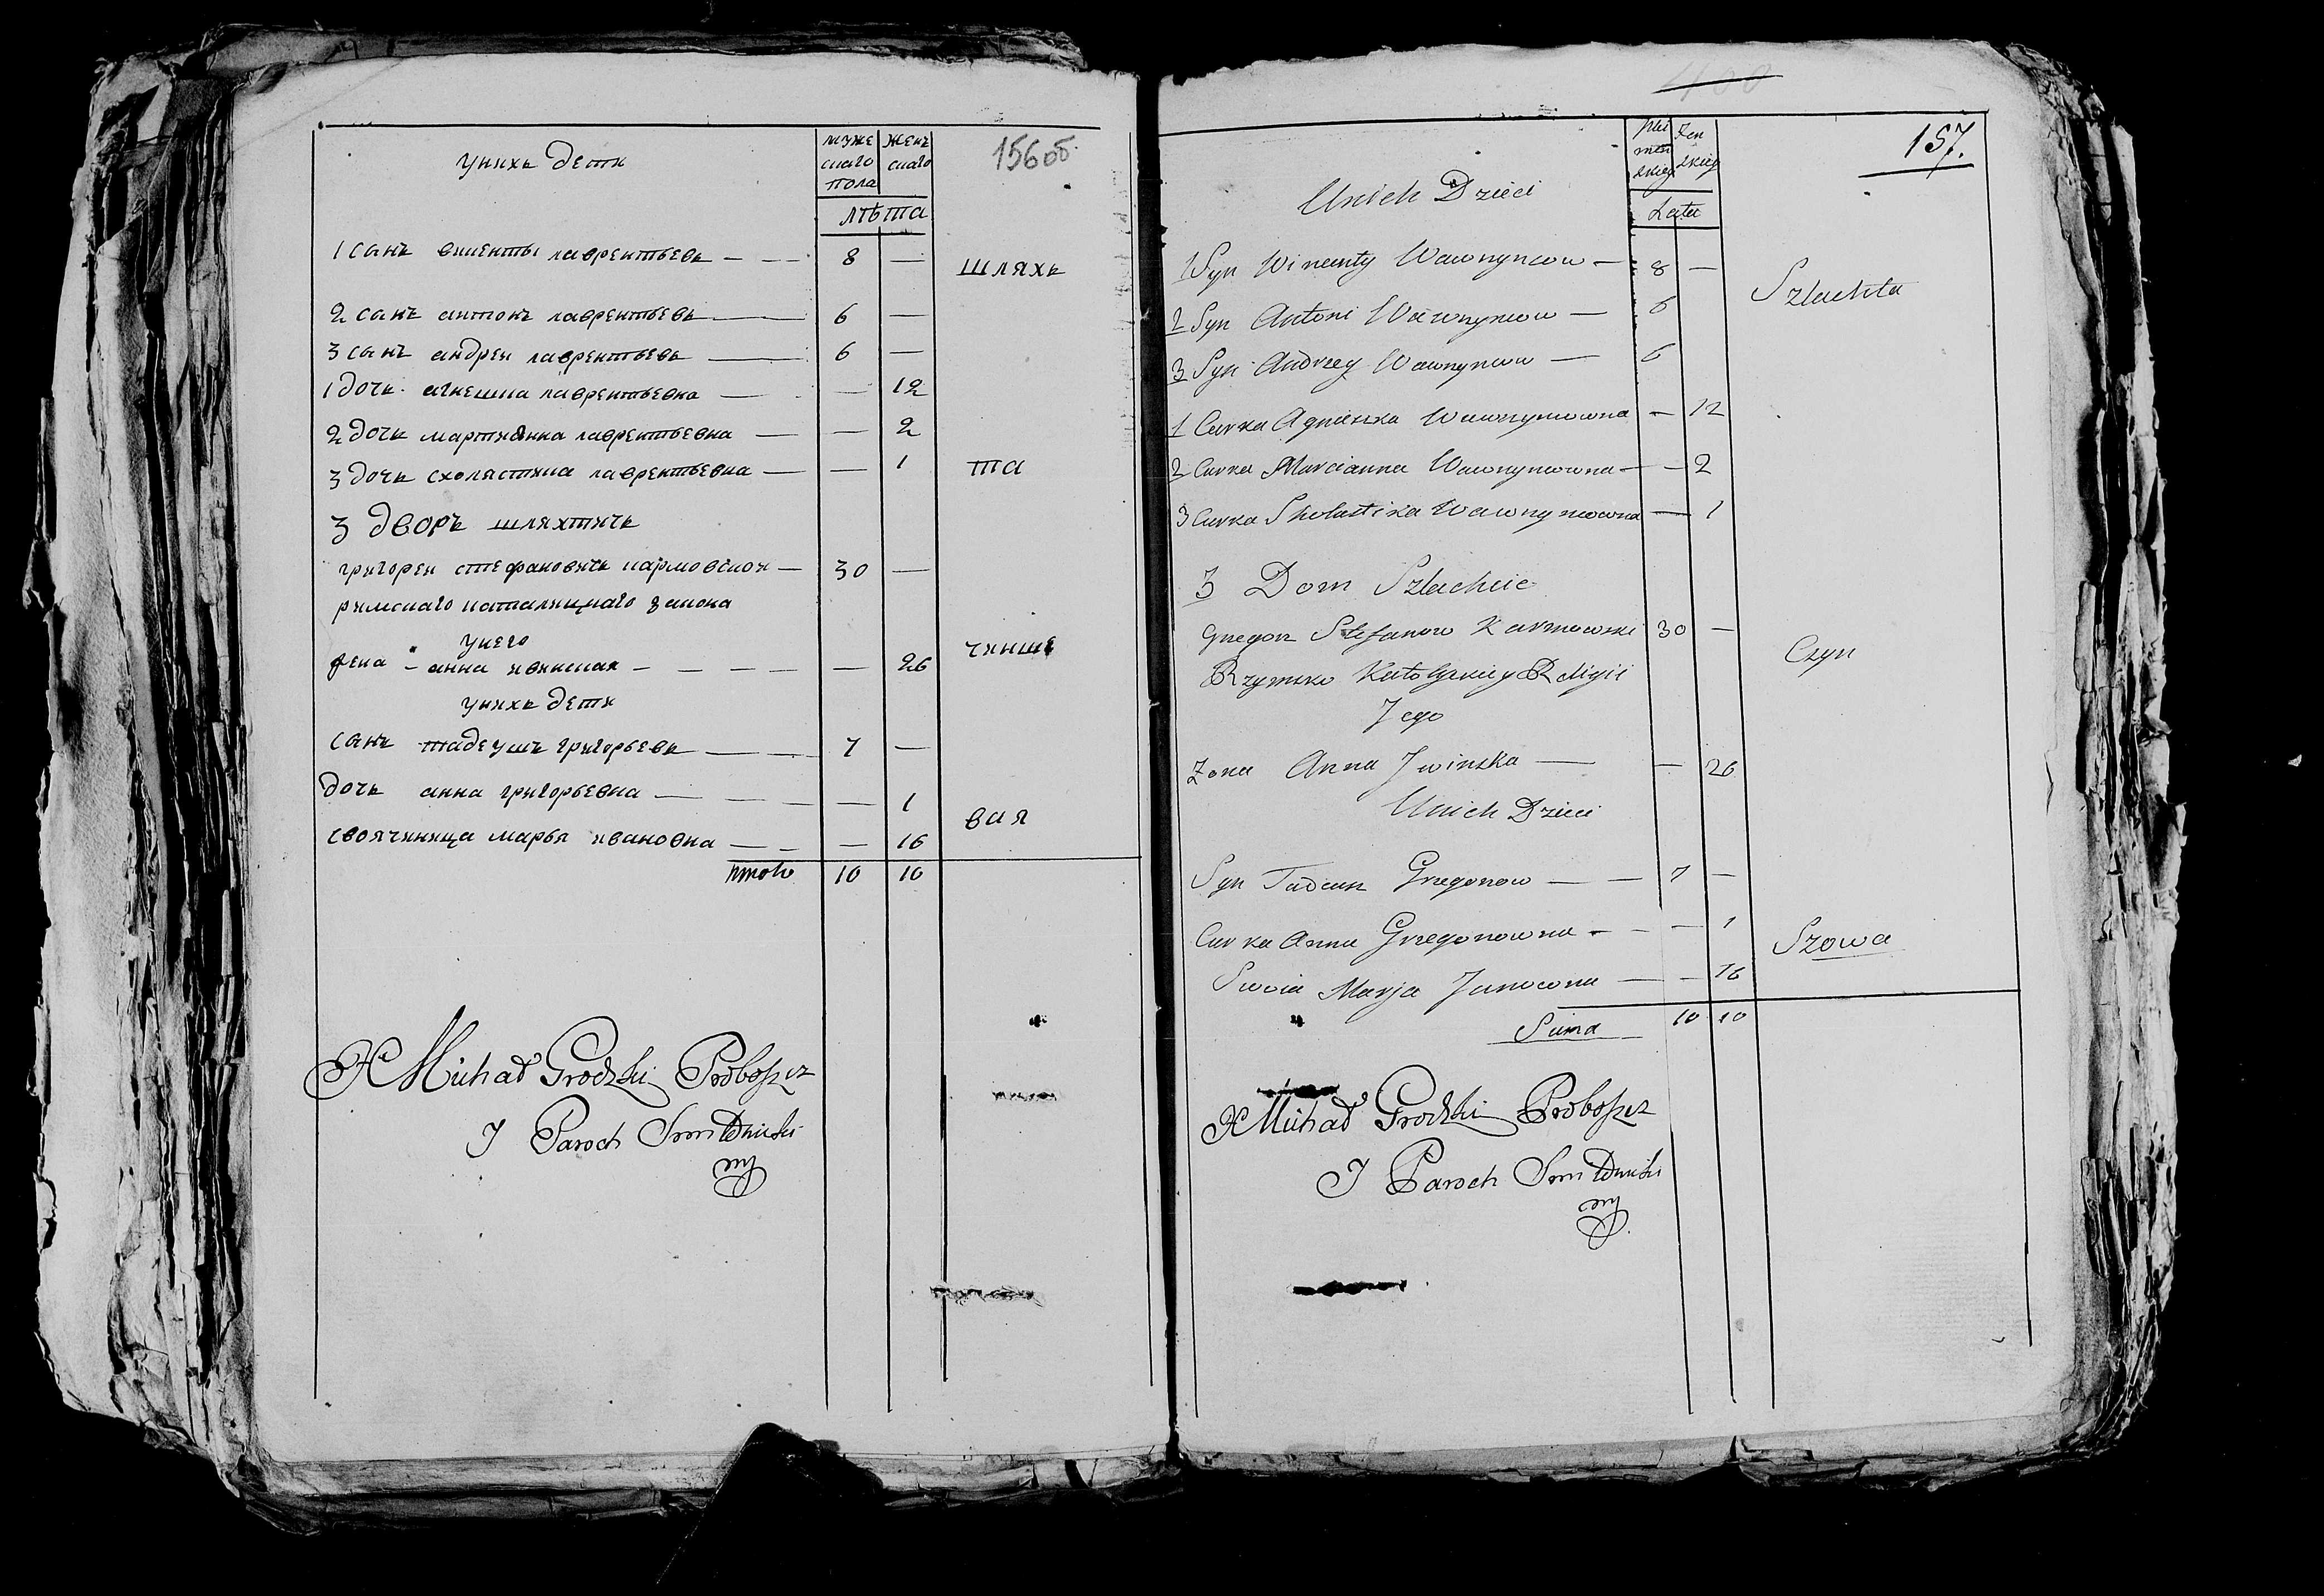 унихь дети
муже
скаго
пола
женъ
скаго
лѣта
156об.
1 санъ виценты лаврентьевь — 8 —
шляхь
2 санъ антонъ лаврентьевь — 6 —
3 санъ андреи лаврентьевь — 6 —
1 дочь агнешка лаврентьевна — — 12
2 дочь мартиянна лаврентьевна — — 2
3 дочь схолястика лаврентьевна — — 1
та
3 дворъ шляхтичь
григореи стефановичь кармовскои — 30 —
римскаго католицкаго закона
унего
чинше
жена — анна ивинская — — 26
унихь дети
санъ тадеушъ григорьевь — 7 —
дочь анна григорьевна — — 1
вая
своячиница марья ивановна — — 16
итого 10 10
X Michał Grodzki Proboszcz
J Paroch
mp
400
157.
Unich Dzieci
Płci
men
skiey
Żen
skiey
Lata
1 Syn Wincenty Wawrzyncow — 8 —
Szlachta
2 Syn Antoni Wawrzyncow — 6
3 Syn Andrzey Wawrzyncow — 6
1 Curka Agnieszka Wawrzyncowna — 12
2 Curka Marcianna Wawrzyncowna — — 2
3 Curka Skolastika Wawrzyncowna — 1
3 Dom Szlachcic
Grzegorz Stefanow Karmowski 30 —
Czyn
Rzymsko Katolyckiey Religii
Jego
Zona Anna Jwinska — — 26
Unich Dzieci
Syn Tadeusz Grzegorzow — — 7 —
Curka Anna Grzegorzowna — — 1
Szowa
Swoia Marja Janowna — — 16
Suma 10 10
X Michał Grodzki Proboszcz
J Paroch
mp